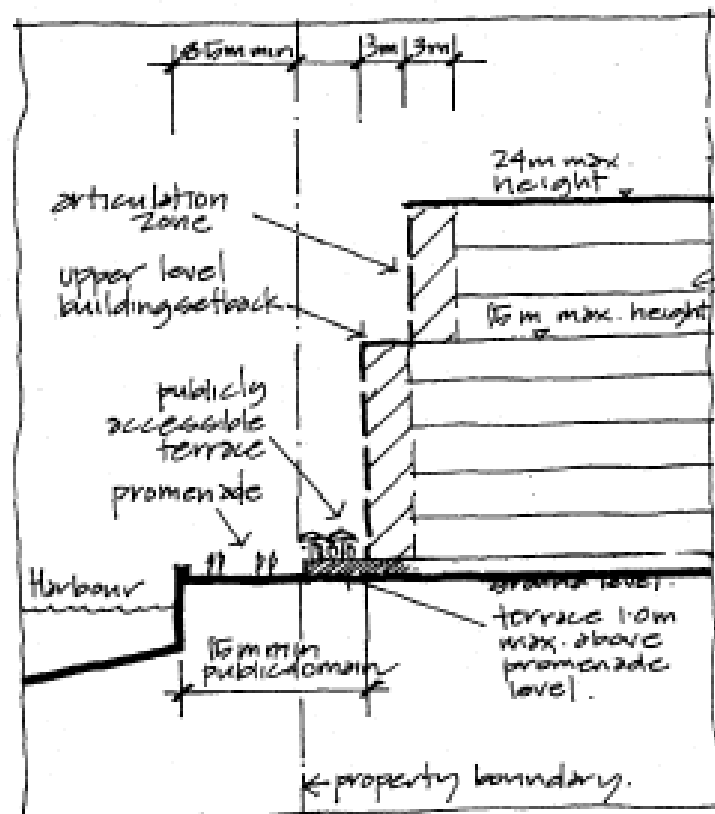 min
3m
3m
24m max.
height
articulation
zone
upper level
building setback
15m max. height
publicly
accessible
terrace
promenade
Harbour
ground level.
terrace 1.0m
max. above
promenade
level.
15m min
public domain
property boundary.